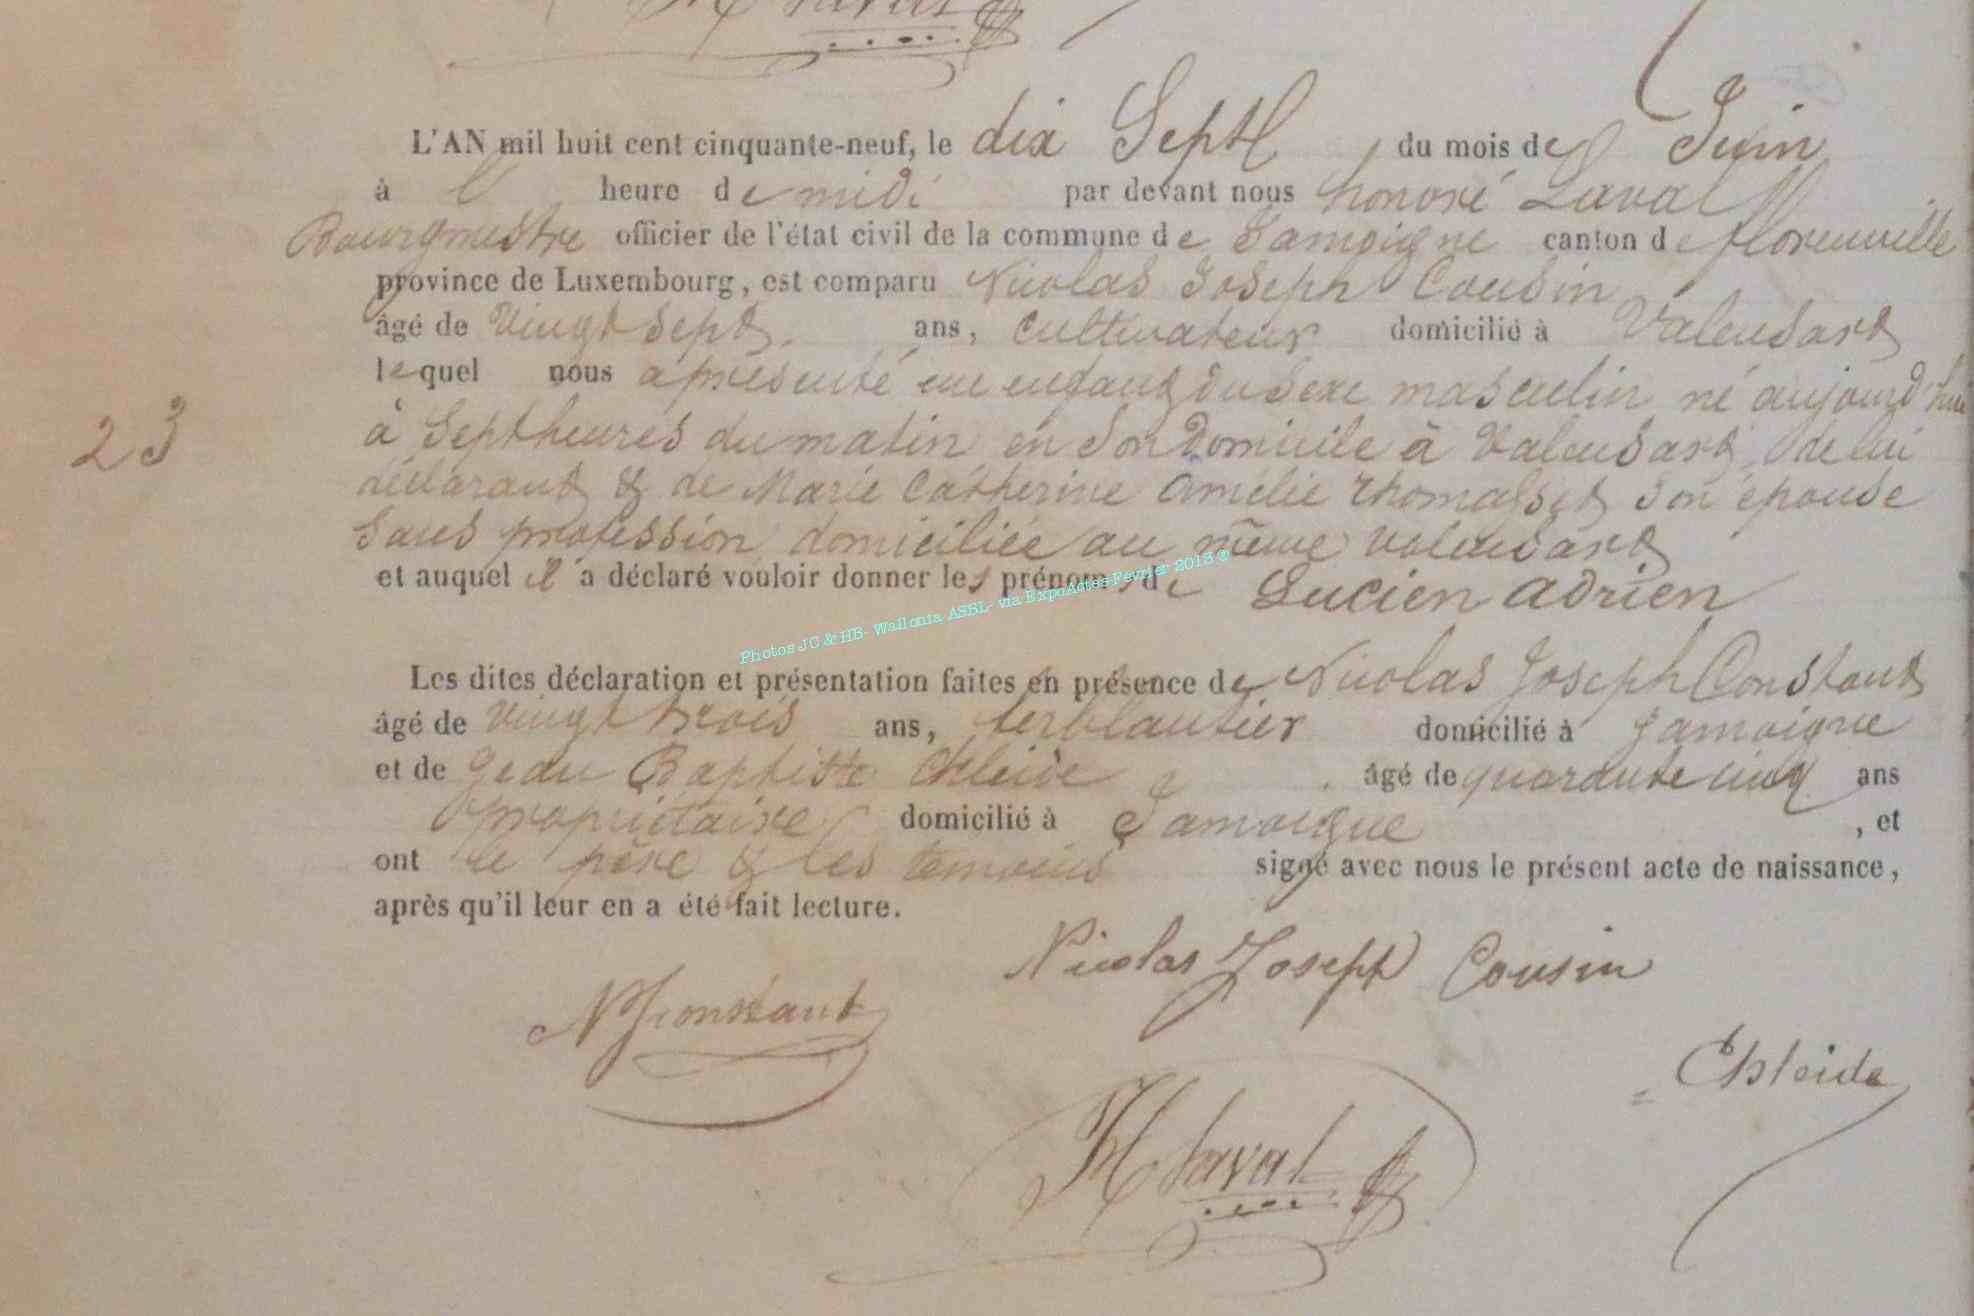 H Laval
L'AN mil huit cent cinquante-neuf, le dix Sept du mois de Juin
à l' heure de midi par devant nous honoré Laval
Bourgmestre officier de l'état civil de la commune de Jamoigne canton de florenville
province de Luxembourg, est comparu Nicolas Joseph Cousin
âgé de Vingt Sept ans, Cultivateur domicilié à Valensart
lequel nous a présenté un enfant du Sexe masculin né aujourd'hui
à Sept heures du matin en Son Domicile à Valensart, de lui
23
déclarant & de Marie Catherine Amélie Thomasset Son épouse
Sans profession domiciliée au même Valensart
et auquel il a déclaré vouloir donner les prénoms de Lucien Adrien
Photos JC & HB- Wallonia ASBL- via ExpoActes Fevrier 2013 ©
Les dites déclaration et présentation faites en présence de Nicolas Joseph Constant
âgé de Vingt trois ans, ferblantier domicilié à Jamoigne
et de Jean Baptiste âgé de quarante cinq ans
propriétaire domicilié à Jamoigne , et
ont le père & les temoins signé avec nous le présent acte de naissance,
après qu'il leur en a été fait lecture.
Nicolas Joseph Cousin
NJConstant
H Laval